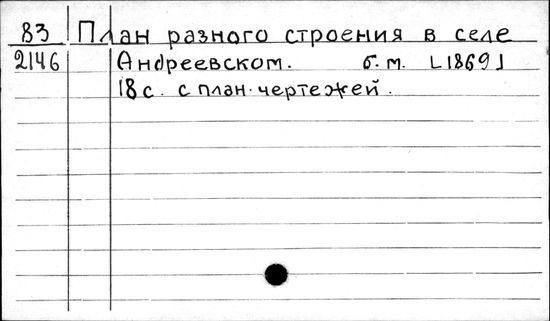 83 План разного строения в селе
2146 Андреевском. б.м. [1869]
18 с. с план. чертежей.